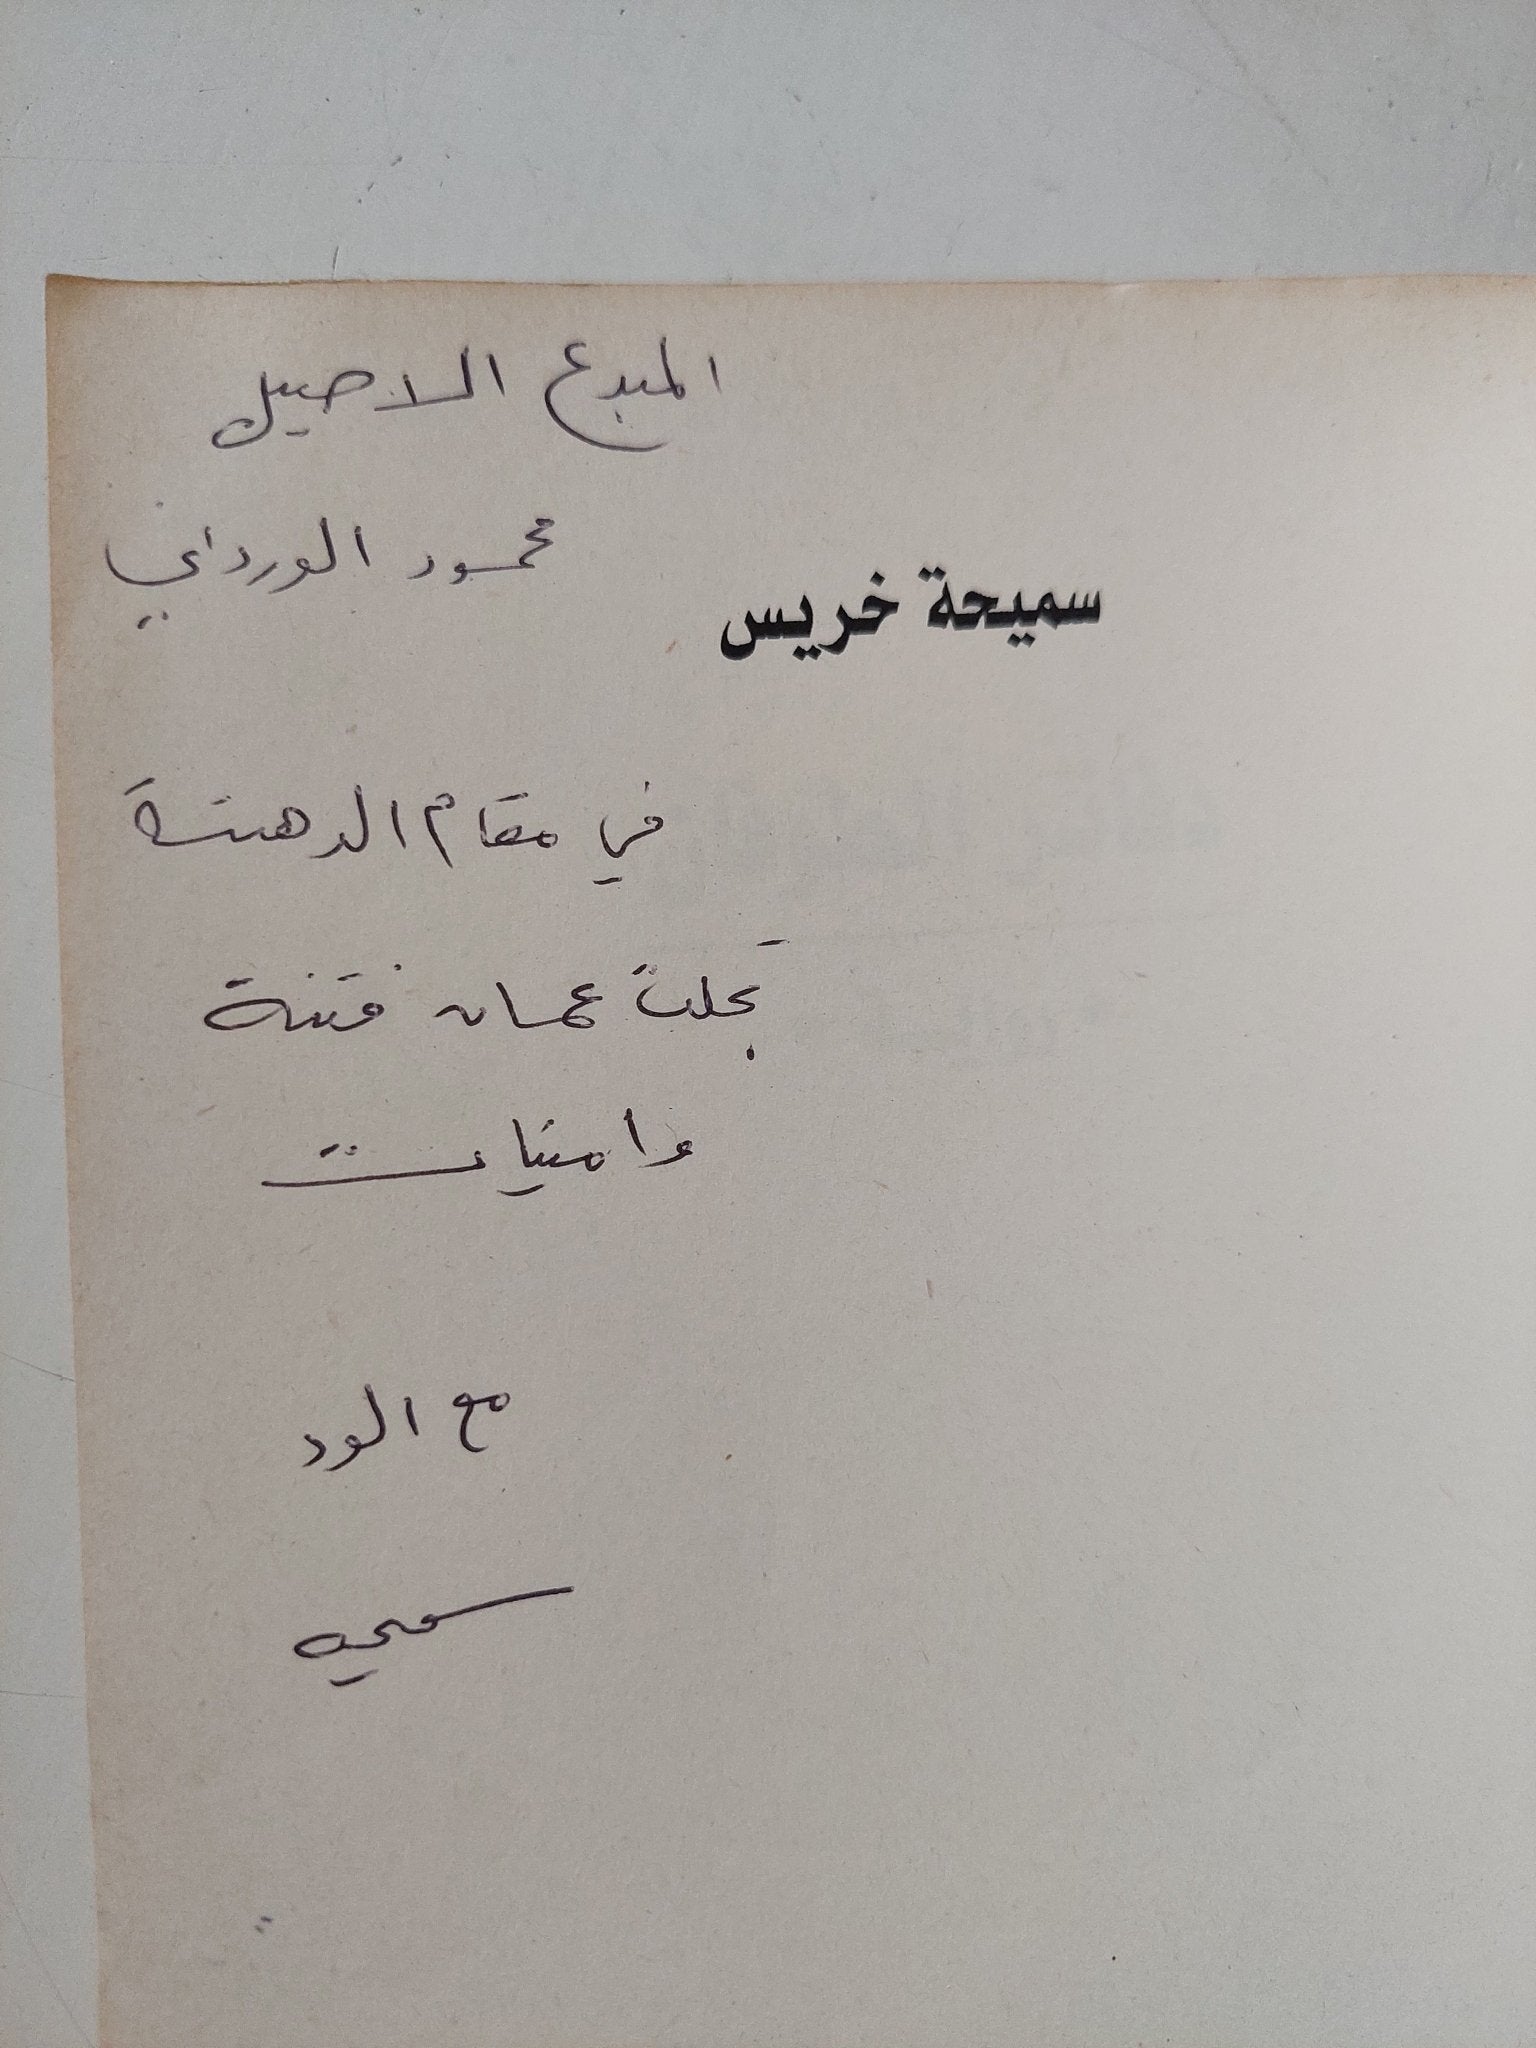 المبدع الاصيل
محمود الورداني
سميحة خريس
في مقام الدهشة
تجلت عمان فتنة
وامنيات
مع الود
سميحه